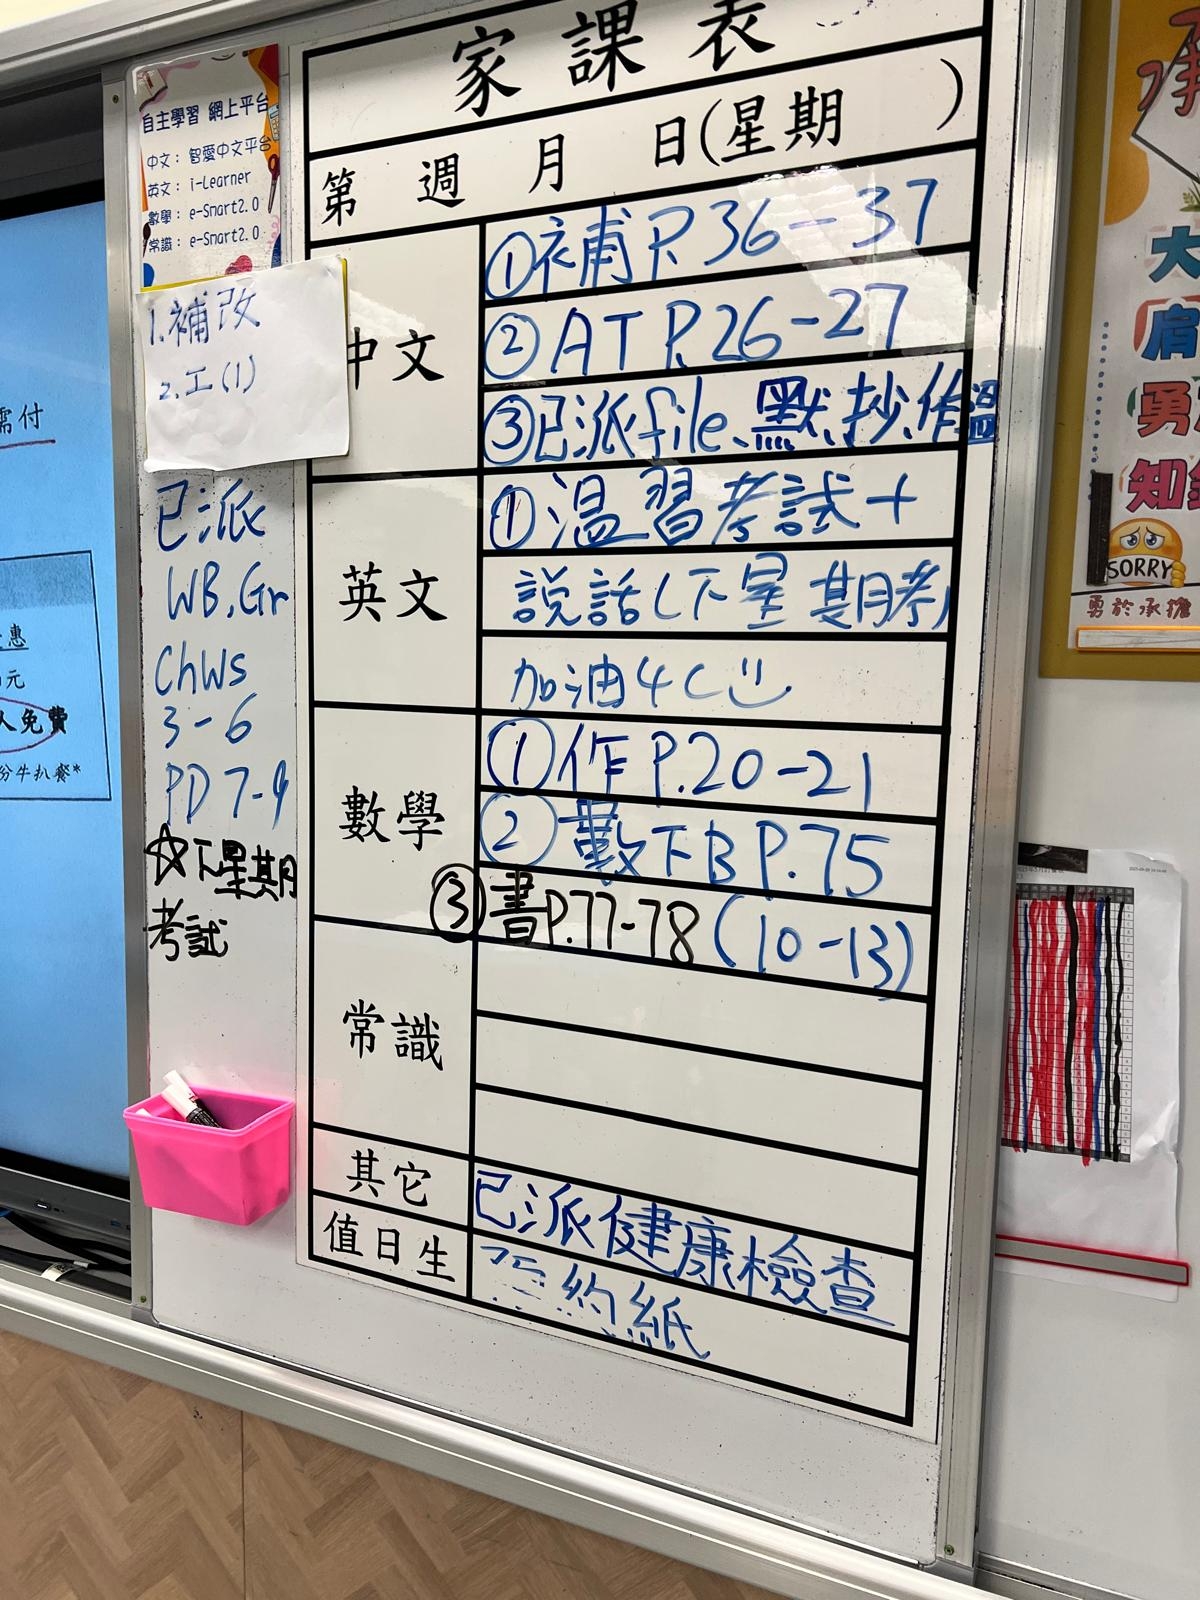 家課表
第 週 月 日(星期 )
自主學習 網上平台
中文： 智愛中文平台
英文： i-Learner
數學： e-Smart2.0
常識： e-Smart2.0
1.補改
2.工(1)
已派
WB,Gr
Chws
3-6
PD 7-9
☆下星期
考試
中文
①補 P.36-37
②AT P.26-27
③已派file、默、抄、作、溫
英文
①温習考試+
説話(下星期考)
加油4C
數學
①作 P.20-21
②數下B P.75
③書P.77-78 (10-13)
常識
其它
已派健康檢查
值日生
約紙
需付
惠
元
人免費
份牛扒餐*
大
肩
勇
知
SORRY
勇於承擔